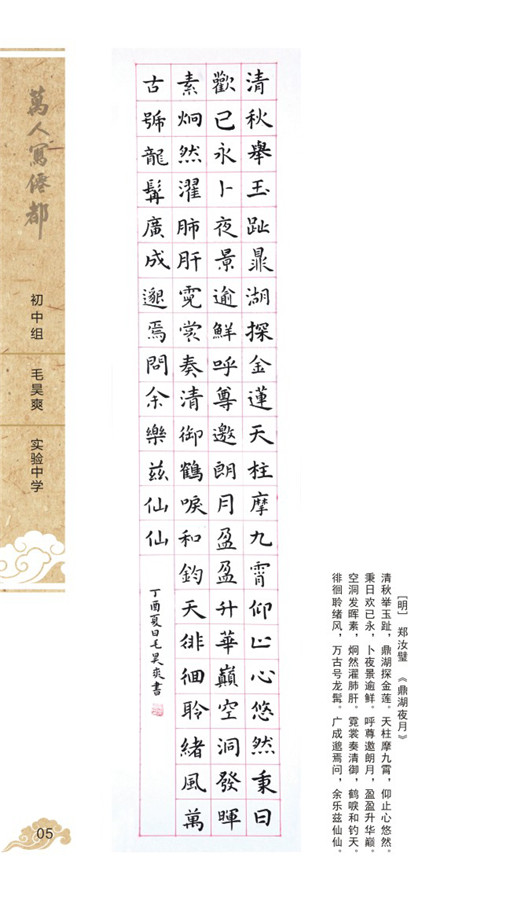 萬人寫僊都
初中组
毛昊爽
实验中学
05
清秋舉玉趾鼎湖探金蓮天柱摩九霄仰止心悠然秉日
歡已永卜夜景逾鮮呼尊邀朗月盈盈升華巔空洞發暉
素炯然濯肺肝霓裳奏清御鶴唳和鈞天徘徊聆緒風萬
古號龍髯廣成邈焉問余樂茲仙仙
丁酉夏日毛昊爽書
[明] 郑汝璧 《鼎湖夜月》
清秋举玉趾，鼎湖探金莲。天柱摩九霄，仰止心悠然。
秉日欢已永，卜夜景逾鲜。呼尊邀朗月，盈盈升华巅。
空洞发晖素，炯然濯肺肝。霓裳奏清御，鹤唳和钧天。
徘徊聆绪风，万古号龙髯。广成邈焉问，余乐兹仙仙。